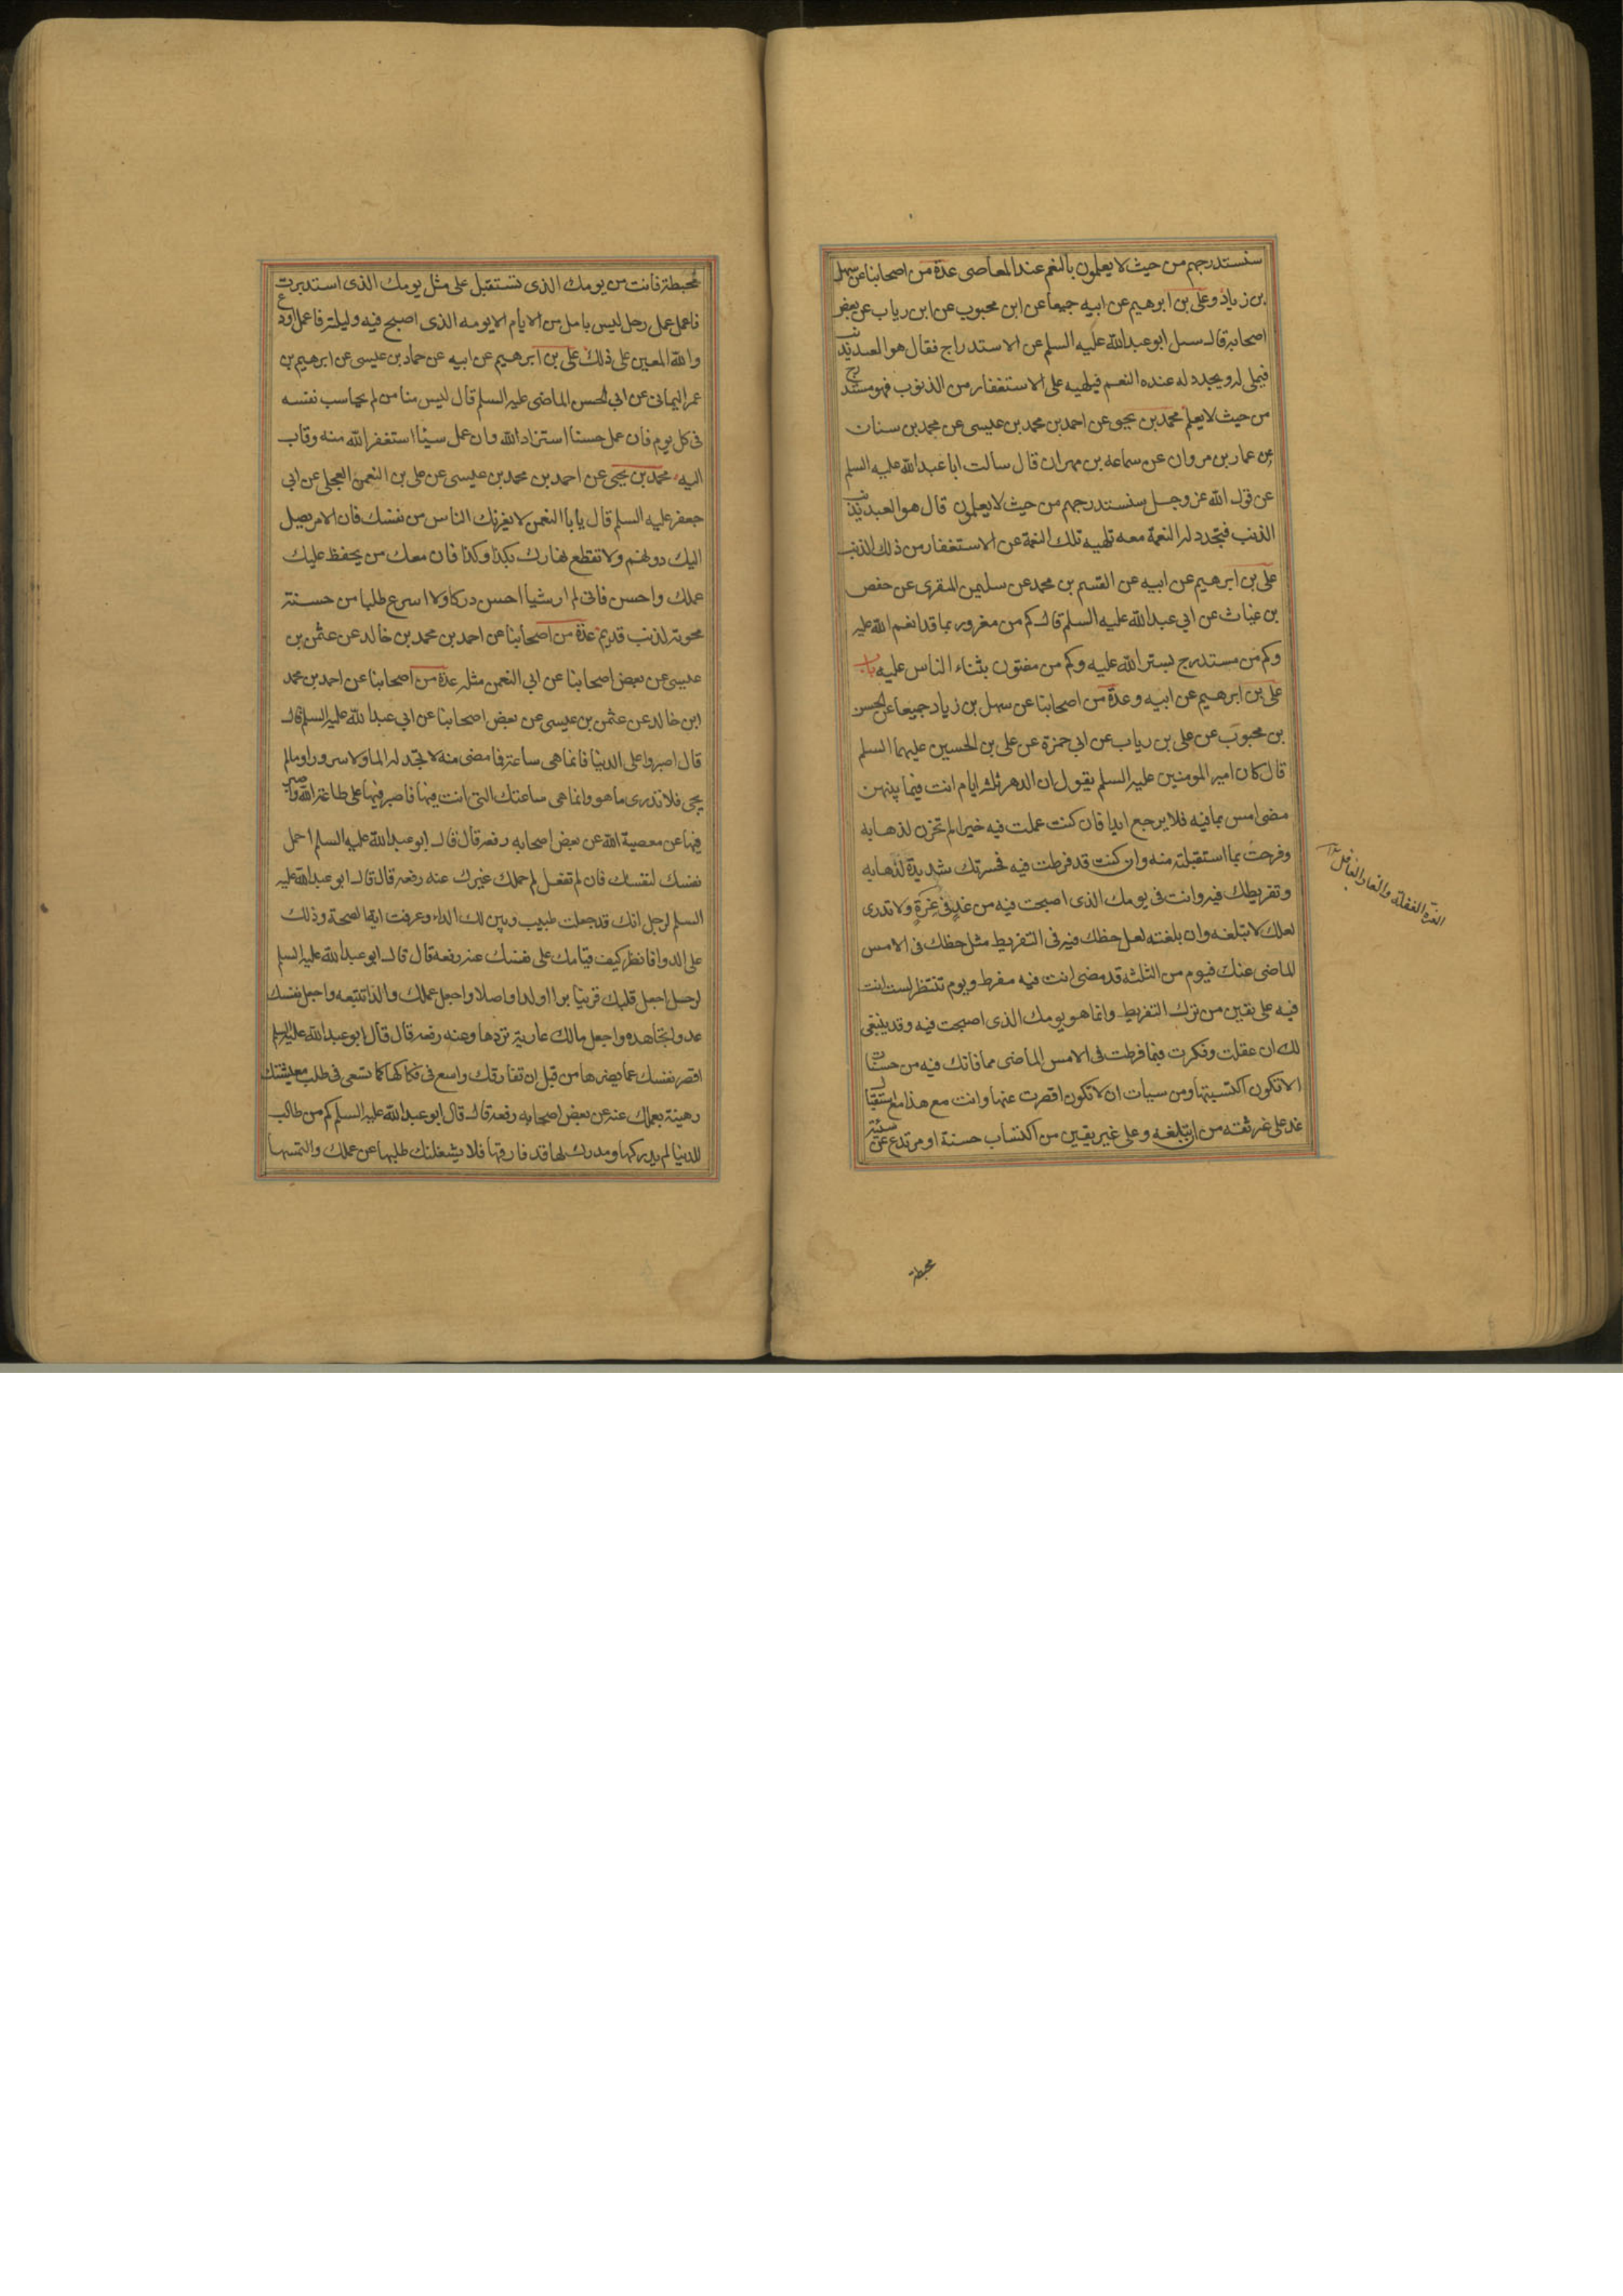 سنستدرجهم من حيث لا يعلمون بالنعم عند المعاصى عدة من اصحابنا عن سهل
بن زياد وعلى بن ابرهيم عن ابيه جميعا عن ابن محبوب عن ابن رياب عن بعض
اصحابه قال سىل ابو عبدالله عليه السلم عن الاستدراج فقال هو العبد يذنب
فيملى له ويجدد له عنده النعم فيلهيه على الاستغفار من الذنوب فهو مستدرج
من حيث لا يعلم محمد بن يحيى عن احمد بن محمد بن عيسى عن محمد بن سنان
عن عمار بن مروان عن سماعه بن مهران قال سالت ابا عبدالله عليه السلم
عن قول الله عز وجل سنستدرجهم من حيث لا يعلمون قال هو العبد يذنب
الذنب فتجدد له النعمة معه تلهيه تلك النعمة عن الاستغفار من ذلك الذنب
على بن ابرهيم عن ابيه عن القسم بن محمد عن سليمن المنقرى عن حفص
بن غياث عن ابى عبدالله عليه السلم قال كم من مغرور بما قد انعم الله عليه
وكم من مستدرج بستر الله عليه وكم من مفتون بثناء الناس عليه باب
على بن ابرهيم عن ابيه وعدة من اصحابنا عن سهل بن زياد جميعا عن الحسن
بن محبوب عن على بن رياب عن ابى حمزة عن على بن الحسين عليهما السلم
قال كان امير المومنين عليه السلم يقول ان الدهر ثلثه ايام انت فيما بينهن
مضى امس بما فيه فلا يرجع ابدا فان كنت عملت فيه خيرا لم تحزن لذهابه
وفرحت بما استقبلته منه وان كنت قد فرطت فيه فحسرتك شديدة لذهابه
وتفريطك فيه وانت فى يومك الذى اصبحت فيه من غد فى غرة ولا تدرى
لعلك لا تبلغه وان بلغته لعل حظك فيه فى التفريط مثل حظك فى الامس
الماضى عنك فيوم من الثلثه قد مضى انت فيه مفرط ويوم تنتظر لست انت
فيه على يقين من ترك التفريط وانما هو يومك الذى اصبحت فيه وقد ينبغى
لك ان عقلت وفكرت فيما فرطت فى الامس الماضى مما فاتك فيه من حسنات
الا تكون اكتسبتها ومن سيات ان لا تكون اقصرت عنها وانت مع هذا مع استقبال
غد على غير ثقته من ان تبلغه وعلى غير يقين من اكتساب حسنة او مرتدع عن سيئة
الغرة الغفلة والغار الغافل
محبطة
محبطة فانت من يومك الذى تستقبل على مثل يومك الذى استدبرت
فاعمل عمل رجل ليس يامل من الايام الا يومه الذى اصبح فيه وليلته فاعمل اودع
والله المعين على ذلك على بن ابرهيم عن ابيه عن حماد بن عيسى عن ابرهيم بن
عمر اليمانى عن ابى الحسن الماضى عليه السلم قال ليس منا من لم يحاسب نفسه
فى كل يوم فان عمل حسنا استزاد الله وان عمل سيئا استغفر الله منه وتاب
اليه محمد بن يحيى عن احمد بن محمد بن عيسى عن على بن النعمن العجلى عن ابى
جعفر عليه السلم قال يا با النعمن لا يغرنك الناس من نفسك فان الامر يصل
اليك دونهم ولا تقطع نهارك بكذا وكذا فان معك من يحفظ عليك
عملك واحسن فانى لم ار شيا احسن دركا ولا اسرع طلبا من حسنة
محوته لذنب قديم عدة من اصحابنا عن احمد بن محمد بن خالد عن عثمن بن
عيسى عن بعض اصحابنا عن ابى النعمن مثله عدة من اصحابنا عن احمد بن محمد
ابن خالد عن عثمن بن عيسى عن بعض اصحابنا عن ابى عبد الله عليه السلم قال
قال اصبروا على الدنيا فانما هى ساعة فما مضى منه لا تجد له الما ولا سرورا وما لم
يجى فلا تدرى ما هو وانما هى ساعتك التى انت فيها فاصبر فيها على طاعة الله واصبر
فيها عن معصية الله عن بعض اصحابه رفعه قال قال ابو عبدالله عليه السلم احمل
نفسك لنفسك فان لم تفعل لم يحملك غيرك عنه رفعه قال قال ابو عبدالله عليه
السلم لرجل انك قد جعلت طبيب وبين لك الداء وعرفت اية الصحة وذلك
على الدوا فانظر كيف قيامك على نفسك عنه رفعه قال قال ابو عبدالله عليه السلم
لرجل اجعل قلبك قرينا برا او ولدا واصلا واجعل عملك والدا تتبعه واجعل نفسك
عدوا تجاهده واجعل مالك عارية تردها وعنه رفعه قال قال ابو عبدالله عليه السلم
اقصر نفسك عما يضرها من قبل ان تفارقك واسع فى فكاكها كما تسعى فى طلب معيشتك
رهينة بعملك عنه عن بعض اصحابه رفعه قال قال ابو عبدالله عليه السلم كم من طالب
للدنيا لم يدركها ومدرك لها قد فارقها فلا يشغلنك طلبها عن عملك والتمسها